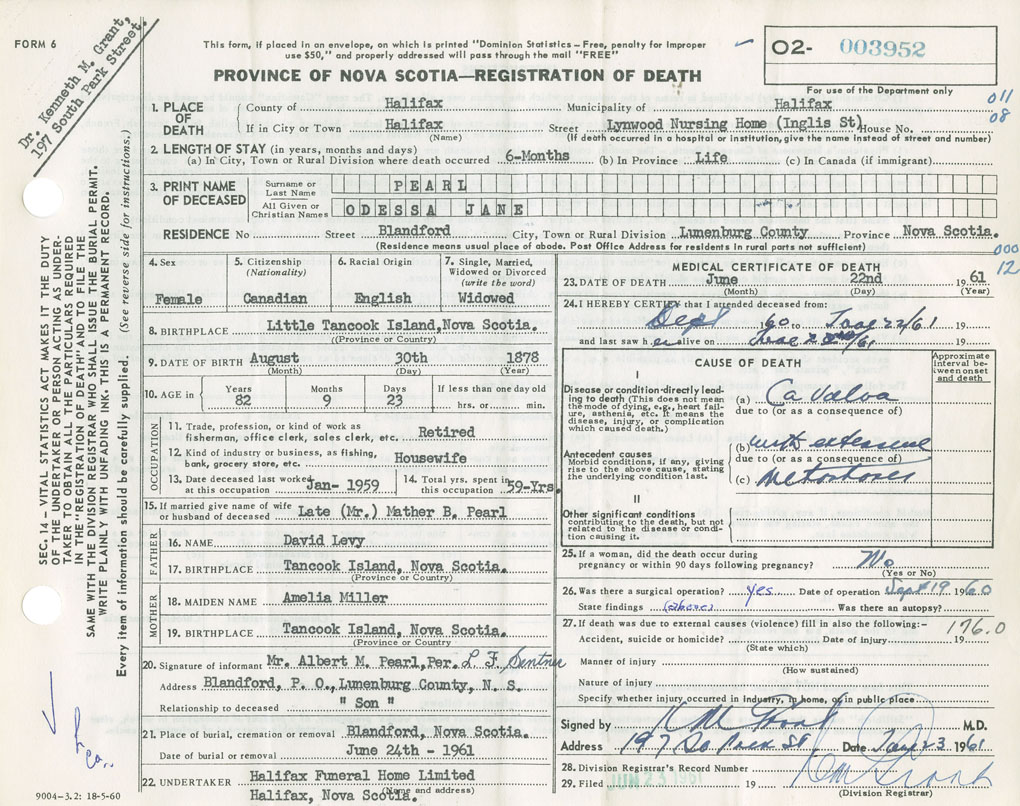 FORM 6
Dr. Kenneth M. Grant,
197 South Park Street.
This form, if placed in an envelope, on which is printed "Dominion Statistics – Free, penalty for improper
use $50," and properly addressed will pass through the mail "FREE"
PROVINCE OF NOVA SCOTIA—REGISTRATION OF DEATH
O2- 003952
For use of the Department only
011
08
1. PLACE OF DEATH
County of Halifax Municipality of Halifax
If in City or Town Halifax Street Lynwood Nursing Home (Inglis St) House No.
(Name) (If death occurred in a hospital or institution, give the name instead of street and number)
2. LENGTH OF STAY (in years, months and days)
(a) In City, Town or Rural Division where death occurred 6-Months (b) In Province Life (c) In Canada (if immigrant)
3. PRINT NAME OF DECEASED
Surname or Last Name PEARL
All Given or Christian Names ODESSA JANE
RESIDENCE No Street Blandford City, Town or Rural Division Lunenburg County Province Nova Scotia.
(Residence means usual place of abode. Post Office Address for residents in rural parts not sufficient)
000
12
SEC. 14 – VITAL STATISTICS ACT MAKES IT THE DUTY
OF THE UNDERTAKER OR PERSON ACTING AS UNDER-
TAKER TO OBTAIN ALL THE PARTICULARS REQUIRED
IN THE "REGISTRATION OF DEATH" AND TO FILE THE
SAME WITH THE DIVISION REGISTRAR WHO SHALL ISSUE THE BURIAL PERMIT.
WRITE PLAINLY WITH UNFADING INK. THIS IS A PERMANENT RECORD.
Every item of information should be carefully supplied. (See reverse side for instructions.)
4. Sex
Female
5. Citizenship
(Nationality)
Canadian
6. Racial Origin
English
7. Single, Married,
Widowed or Divorced
(write the word)
Widowed
8. BIRTHPLACE Little Tancook Island, Nova Scotia.
((Province or Country)
9. DATE OF BIRTH August 30th 1878
(Month) (Day) (Year)
10. AGE in
Years Months Days If less than one day old
82 9 23 hrs. or min.
OCCUPATION
11. Trade, profession, or kind of work as
fisherman, office clerk, sales clerk, etc. Retired
12. Kind of industry or business, as fishing,
bank, grocery store, etc. Housewife
13. Date deceased last worked
at this occupation Jan- 1959
14. Total yrs. spent in
this occupation 59-Yrs.
15. If married give name of wife
or husband of deceased Late (Mr.) Mather B. Pearl
FATHER
16. NAME David Levy
17. BIRTHPLACE Tancook Island, Nova Scotia.
(Province or Country)
MOTHER
18. MAIDEN NAME Amelia Miller
19. BIRTHPLACE Tancook Island, Nova Scotia.
(Province or Country
20. Signature of informant Mr. Albert M. Pearl, Per. L F
Address Blandford, P. O., Lunenburg County, N. S.
Relationship to deceased " Son "
21. Place of burial, cremation or removal Blandford, Nova Scotia.
Date of burial or removal June 24th - 1961
22. UNDERTAKER Halifax Funeral Home Limited
Halifax, Nova Scotia.
(Name and address)
9004-3.2: 18-5-60
MEDICAL CERTIFICATE OF DEATH
23. DATE OF DEATH June 22nd 1961
(Month) (Day) (Year)
24. I HEREBY CERTIFY that I attended deceased from:
Sept 60 to June 22/61 19
and last saw her alive on June 22nd/61 19
CAUSE OF DEATH
Approximate
interval be-
tween onset
and death
I
Disease or condition directly lead-
ing to death (This does not mean
the mode of dying, e.g., heart fail-
ure, asthenia, etc. It means the
disease, injury, or complication
which caused death.)
(a) Ca Vulva
due to (or as a consequence of)
Antecedent causes
Morbid conditions, if any, giving
rise to the above cause, stating
the underlying condition last.
(b) with extensive
due to (or as a consequence of)
(c) Metastases
II
Other significant conditions
contributing to the death, but not
related to the disease or condi-
tion causing it.
25. If a woman, did the death occur during
pregnancy or within 90 days following pregnancy? No
(Yes or No)
26. Was there a surgical operation? yes Date of operation Sept 19 1960
State findings (above) Was there an autopsy?
27. If death was due to external causes (violence) fill in also the following:-
176.0
Accident, suicide or homicide? Date of injury 19
(State which)
Manner of injury
(How sustained)
Nature of injury
Specify whether injury occurred in industry, in home, or in public place
Signed by K M Grant M.D.
Address 197 So Park St Date June 23 1961
28. Division Registrar's Record Number
29. Filed JUN 23 1961 19 KM Grant
(Division Registrar)